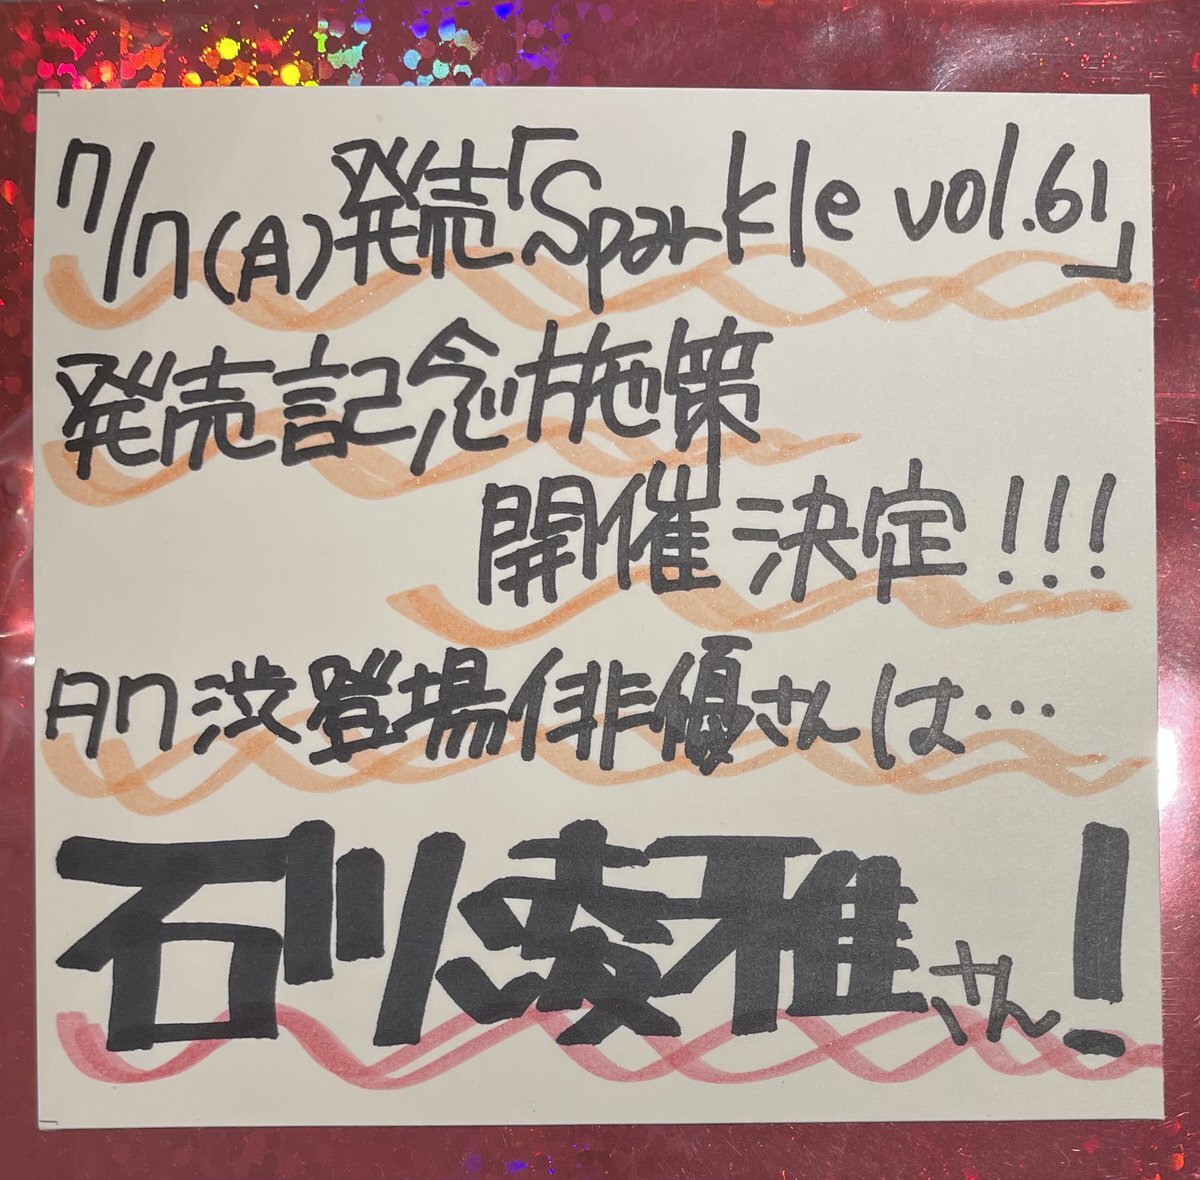 7/7(月)発売「Sparkle vol.61」
発売記念施策
開催決定!!!
月7渋登場俳優さんは…
石川凌雅さん!